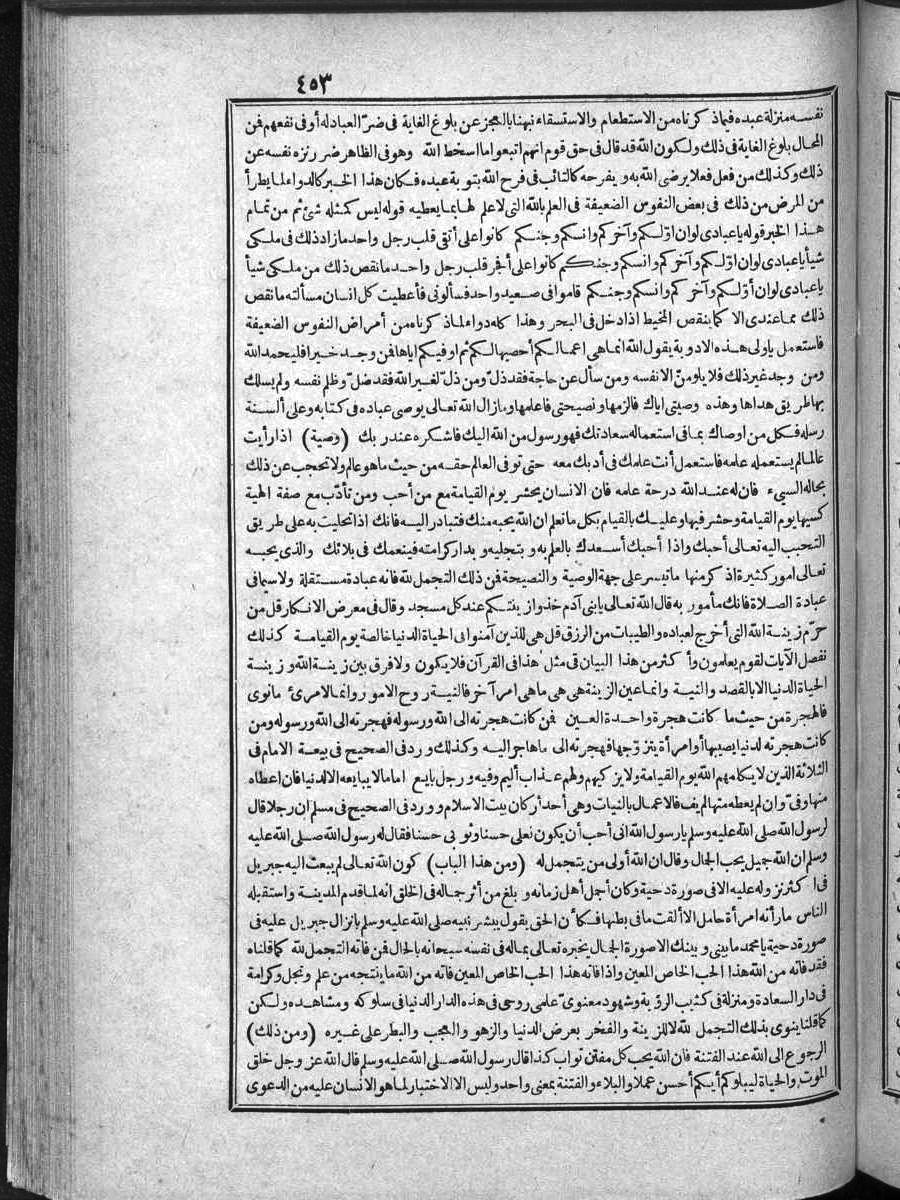 ٤٥٣
نفسه منزلة عبده فيما ذكرناه من الاستطعام والاستسقاء نبهنا بالعجز عن بلوغ الغاية فى ضر العباد له أو فى نفعهم فن
المحال بلوغ الغاية فى ذلك ولكون الله قد قال فى حق قوم انهم اتبعوا ما اسخط الله وهو فى الظاهر ضرر نزه نفسه عن
ذلك وكذلك من فعل فعلا يرضى الله به ويفرحه كالتائب فى فرح الله بتوبة عبده فكان هذا الخبر كالدواء لما يطرأ
من المرض من ذلك فى بعض النفوس الضعيفة فى العلم بالله التى لا علم لها بما يعطيه قوله ليس كمثله شئ ثم من تمام
هذا الخبر قوله يا عبادى لو ان أولكم وآخركم وانسكم وجنكم كانوا على أتقى قلب رجل واحد ما زاد ذلك فى ملكى
شيأ يا عبادى لو ان أولكم وآخركم وانسكم وجنكم كانوا على أفجر قلب رجل واحد ما نقص ذلك من ملكى شيأ
يا عبادى لو ان أولكم وآخركم وانسكم وجنكم قاموا فى صعيد واحد فسألونى فأعطيت كل انسان مسألته ما نقص
ذلك مما عندى الا كما ينقص المخيط اذا دخل فى البحر وهذا كله دواء لما ذكرناه من أمراض النفوس الضعيفة
فاستعمل يا ولى هذه الادوية يقول الله انما هى اعمالكم أحصيها لكم ثم اوفيكم اياها فن وجد خيرا فليحمد الله
ومن وجد غير ذلك فلا يلومن الا نفسه ومن سأل عن حاجة فقد ذل ومن ذل لغير الله فقد ضل وظلم نفسه ولم يسلك
بها طريق هداها وهذه وصيتى اياك فالزمها ونصيحتى فاعلمها وما زال الله تعالى يوصى عباده فى كتابه وعلى ألسنة
رسله فكل من اوصاك بما فى استعماله سعادتك فهو رسول من الله اليك فاشكره عند ربك (وصية) اذا رأيت
عالما لم يستعمله علمه فاستعمل أنت علمك فى أدبك معه حتى توفى العالم حقه من حيث ما هو عالم ولا تحجب عن ذلك
بحاله السيئ فان له عند الله درجة علمه فان الانسان يحشر يوم القيامة مع من أحب ومن تأدب مع صفة الهية
كسيها يوم القيامة وحشر فيها وعليك بالقيام بكل ما تعلم ان الله يحبه منك فتبادر اليه فانك اذا تحليت به على طريق
التحبب اليه تعالى أحبك واذا أحبك أسعدك بالعلم به وبتجليه وبدار كرامته فينعمك فى بلائك والذى يحبه
تعالى امور كثيرة اذكر منها ما تيسر على جهة الوصية والنصيحة فن ذلك التجمل لله فانه عبادة مستقلة ولا سيما فى
عبادة الصلاة فانك مأمور به قال الله تعالى يا بنى آدم خذوا زينتكم عند كل مسجد وقال فى معرض الانكار قل من
حرم زينة الله التى أخرج لعباده والطيبات من الرزق قل هى للذين آمنوا فى الحياة الدنيا خالصة يوم القيامة كذلك
نفصل الآيات لقوم يعلمون وأكثر من هذا البيان فى مثل هذا فى القرآن فلا يكون ولا فرق بين زينة الله وزينة
الحياة الدنيا الا بالقصد والنية وانما عين الزينة هى هى ما هى امر آخر فالنية روح الامور وانما لامرئ ما نوى
فالهجرة من حيث ما كانت هجرة واحدة العين فن كانت هجرته الى الله ورسوله فهجرته الى الله ورسوله ومن
كانت هجرته لدنيا يصيبها أو امرأة يتزوجها فهجرته الى ما هاجر اليه وكذلك ورد فى الصحيح فى بيعة الامام فى
الثلاثة الذين لا يكلمهم الله يوم القيامة ولا يزكيهم ولهم عذاب أليم وفيه ورجل بايع اماما لا يبايعه الا لدنيا فان اعطاه
منها وفى وان لم يعطه منها لم يف فالاعمال بالنيات وهى أحد أركان بيت الاسلام وورد فى الصحيح فى مسلم ان رجلا قال
لرسول الله صلى الله عليه وسلم يا رسول الله انى أحب أن يكون نعلى حسنا وثوبى حسنا فقال له رسول الله صلى الله عليه
وسلم ان الله جميل يحب الجمال وقال ان الله أولى من يتجمل له (ومن هذا الباب) كون الله تعالى لم يبعث اليه جبريل
فى اكثر نزوله عليه الا فى صورة دحية وكان أجمل أهل زمانه وبلغ من أثر جماله فى الخلق انه لما قدم المدينة واستقبله
الناس ما رأته امرأة حامل الا ألقت ما فى بطنها فكأن الحق يقول يبشر نبيه صلى الله عليه وسلم بانزال جبريل عليه فى
صورة دحية يا محمد ما بينى وبينك الا صورة الجمال يخبره تعالى بما له فى نفسه سبحانه بالحال فن فاته التجمل لله كما قلناه
فقد فاته من الله هذا الحب الخاص المعين واذا فاته هذا الحب الخاص المعين فاته من الله ما ينتجه من علم وتجل وكرامة
فى دار السعادة ومنزلة فى كثيب الرؤية وشهود معنوى علمى روحى فى هذه الدار الدنيا فى سلوكه ومشاهده ولكن
كما قلنا ينوى بذلك التجمل لله لا للزينة والفخر بعرض الدنيا والزهو والعجب والبطر على غيره (ومن ذلك)
الرجوع الى الله عند الفتنة فان الله يحب كل مفتن تواب كذا قال رسول الله صلى الله عليه وسلم قال الله عز وجل خلق
الموت والحياة ليبلوكم أيكم أحسن عملا والبلاء والفتنة بمعنى واحد وليس الا الاختبار لما هو الانسان عليه من الدعوى